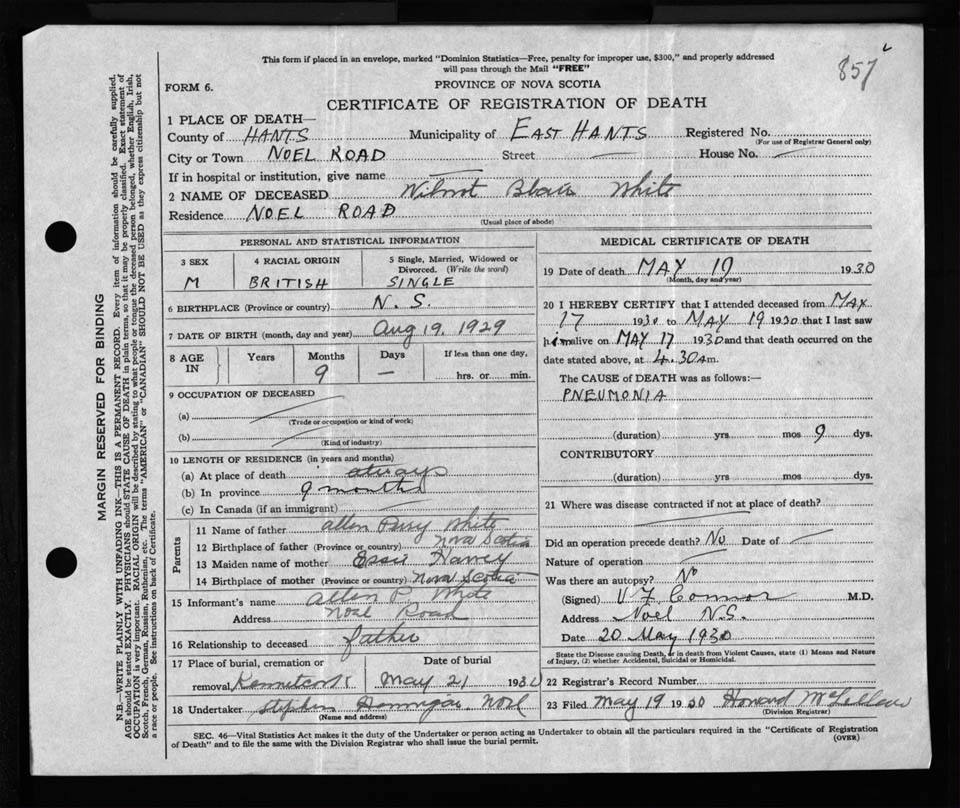 857
This form if placed in an envelope, marked "Dominion Statistics—Free, penalty for improper use, $300," and properly addressed
will pass through the Mail "FREE"
FORM 6.
PROVINCE OF NOVA SCOTIA
CERTIFICATE OF REGISTRATION OF DEATH
1 PLACE OF DEATH—
County of HANTS Municipality of EAST HANTS Registered No.
(For use of Registrar General only)
City or Town NOEL ROAD Street — House No. —
If in hospital or institution, give name —
2 NAME OF DECEASED Wilmot Blair White
Residence NOEL ROAD
(Usual place of abode)
PERSONAL AND STATISTICAL INFORMATION
3 SEX 4 RACIAL ORIGIN 5 Single, Married, Widowed or
Divorced. (Write the word)
M BRITISH SINGLE
6 BIRTHPLACE (Province or country) N. S.
7 DATE OF BIRTH (month, day and year) Aug 19, 1929
8 AGE IN Years Months Days If less than one day,
9 — hrs. or min.
9 OCCUPATION OF DECEASED
(a)
(Trade or occupation or kind of work)
(b)
(Kind of industry)
10 LENGTH OF RESIDENCE (in years and months)
(a) At place of death always
(b) In province 9 months
(c) In Canada (if an immigrant) —
Parents
11 Name of father Allen Perry White
12 Birthplace of father (Province or country) Nova Scotia
13 Maiden name of mother Essie Harvey
14 Birthplace of mother (Province or country) Nova Scotia
15 Informant's name Allen P. White
Address Noel Road
16 Relationship to deceased father
17 Place of burial, cremation or Date of burial
removal Kennetcook May 21 1930
18 Undertaker Stephen Noel
(Name and address)
MEDICAL CERTIFICATE OF DEATH
19 Date of death MAY 19 1930
(Month, day and year)
20 I HEREBY CERTIFY that I attended deceased from MAY
17 1930 to MAY 19 1930 that I last saw
him alive on MAY 17 1930 and that death occurred on the
date stated above, at 4.30 a m.
The CAUSE of DEATH was as follows:—
PNEUMONIA
(duration) yrs mos 9 dys.
CONTRIBUTORY
(duration) yrs mos dys.
21 Where was disease contracted if not at place of death?
Did an operation precede death? No Date of —
Nature of operation —
Was there an autopsy? No
(Signed) Connor M.D.
Address Noel N.S.
Date 20 May 1930
State the Disease causing Death, or in death from Violent Causes, state (1) Means and Nature
of Injury, (2) whether Accidental, Suicidal or Homicidal.
22 Registrar's Record Number
23 Filed May 19 1930 Howard McLellan
(Division Registrar)
SEC. 46—Vital Statistics Act makes it the duty of the Undertaker or person acting as Undertaker to obtain all the particulars required in the "Certificate of Registration
of Death" and to file the same with the Division Registrar who shall issue the burial permit.
(OVER)
MARGIN RESERVED FOR BINDING
N.B.—WRITE PLAINLY WITH UNFADING INK—THIS IS A PERMANENT RECORD. Every item of information should be carefully supplied.
AGE should be stated EXACTLY. PHYSICIANS should STATE CAUSE OF DEATH in plain terms, so that it may be properly classified. Exact statement of
OCCUPATION is very important. RACIAL ORIGIN will be described by stating to what people or tongue the deceased person belonged, whether English, Irish,
Scotch, French, German, Russian, Ruthenian, etc. The terms "AMERICAN" or "CANADIAN" SHOULD NOT BE USED as they express citizenship but not
a race or people. See instructions on back of Certificate.